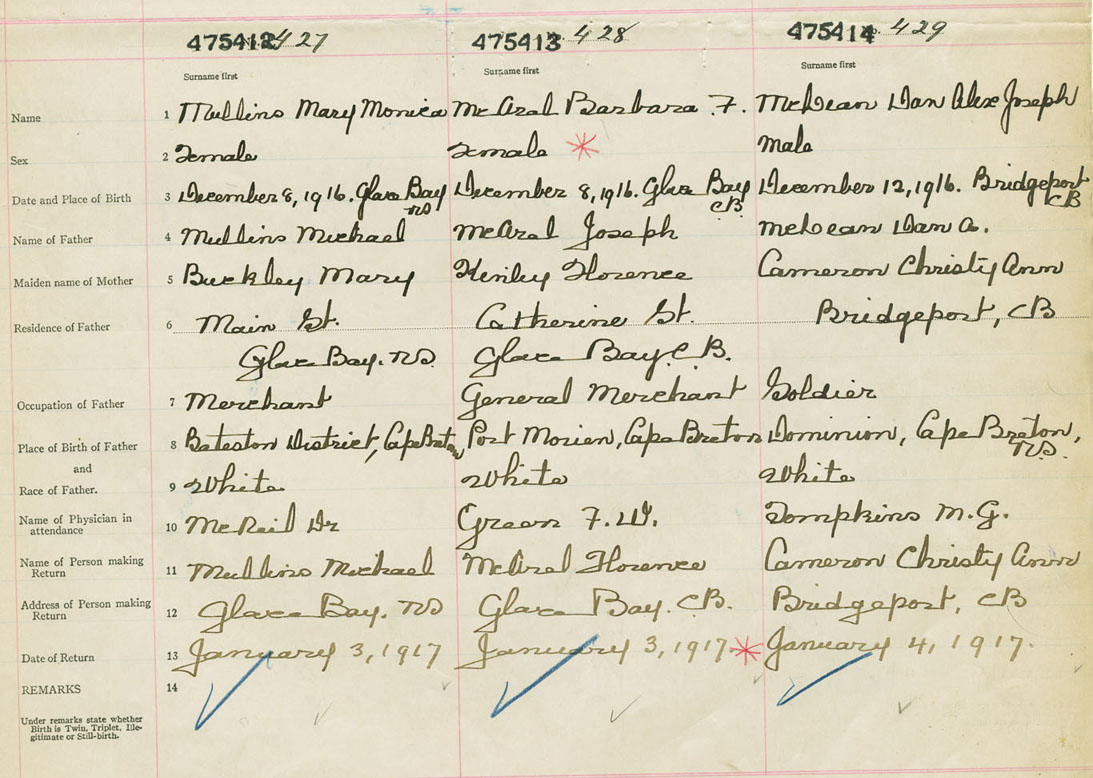 475412 427 475413 428 475414 No. 429
Surname first Surname first Surname first
Name 1 Mullins Mary Monica McAral Barbara F. McLean Dan Alex Joseph
Sex 2 Female Female * male
Date and Place of Birth 3 December 8, 1916. Glace Bay NS December 8, 1916. Glace Bay CB December 12, 1916. Bridgeport CB
Name of Father 4 Mullins Michael McAral Joseph McLean Dan A.
Maiden name of Mother 5 Buckley Mary Florence Cameron Christy Ann
Residence of Father 6 Main St. Catherine St. Bridgeport, CB
Glace Bay. NS Glace Bay C.B.
Occupation of Father 7 Merchant General Merchant Soldier
Place of Birth of Father 8 Bateston District, Cape Breton Port Morien, Cape Breton Dominion, Cape Breton, N.S.
and
Race of Father. 9 White White White
Name of Physician in
attendance 10 McNeil Dr Green F. W. Tompkins M. G.
Name of Person making
Return 11 Mullins Michael McAral Florence Cameron Christy Ann
Address of Person making
Return 12 Glace Bay. NS Glace Bay. CB. Bridgeport, CB
Date of Return 13 January 3, 1917 January 3, 1917. * January 4, 1917.
REMARKS 14
Under remarks state whether
Birth is Twin, Triplet, Ille-
gitimate or Still-birth.